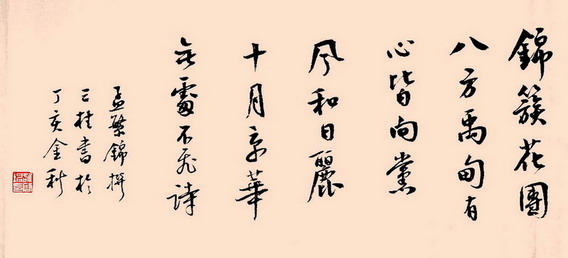 錦簇花團
八方禹甸有
心皆向黨
風和日麗
十月京華
无處不飛詩
孟繁錦撰
三桂書於
丁亥金秋